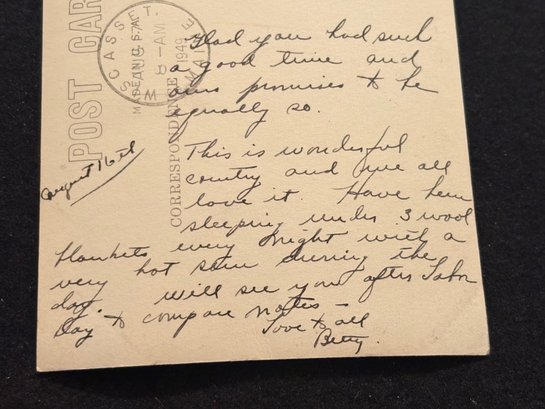 POST CAR
WISCASSET
MAINE
AUG
8 -AM
1949
MADE IN U.S.A.
CORRESPONDENCE
August 16th
Glad you had such
a good time and
ours promises to be
equally so.
This is wonderful
country and we all
love it. Have been
sleeping under 3 wool
blankets every night with a
very hot sun during the
day. will see you after Labor
Day to compare notes -
Love to all
Betty.